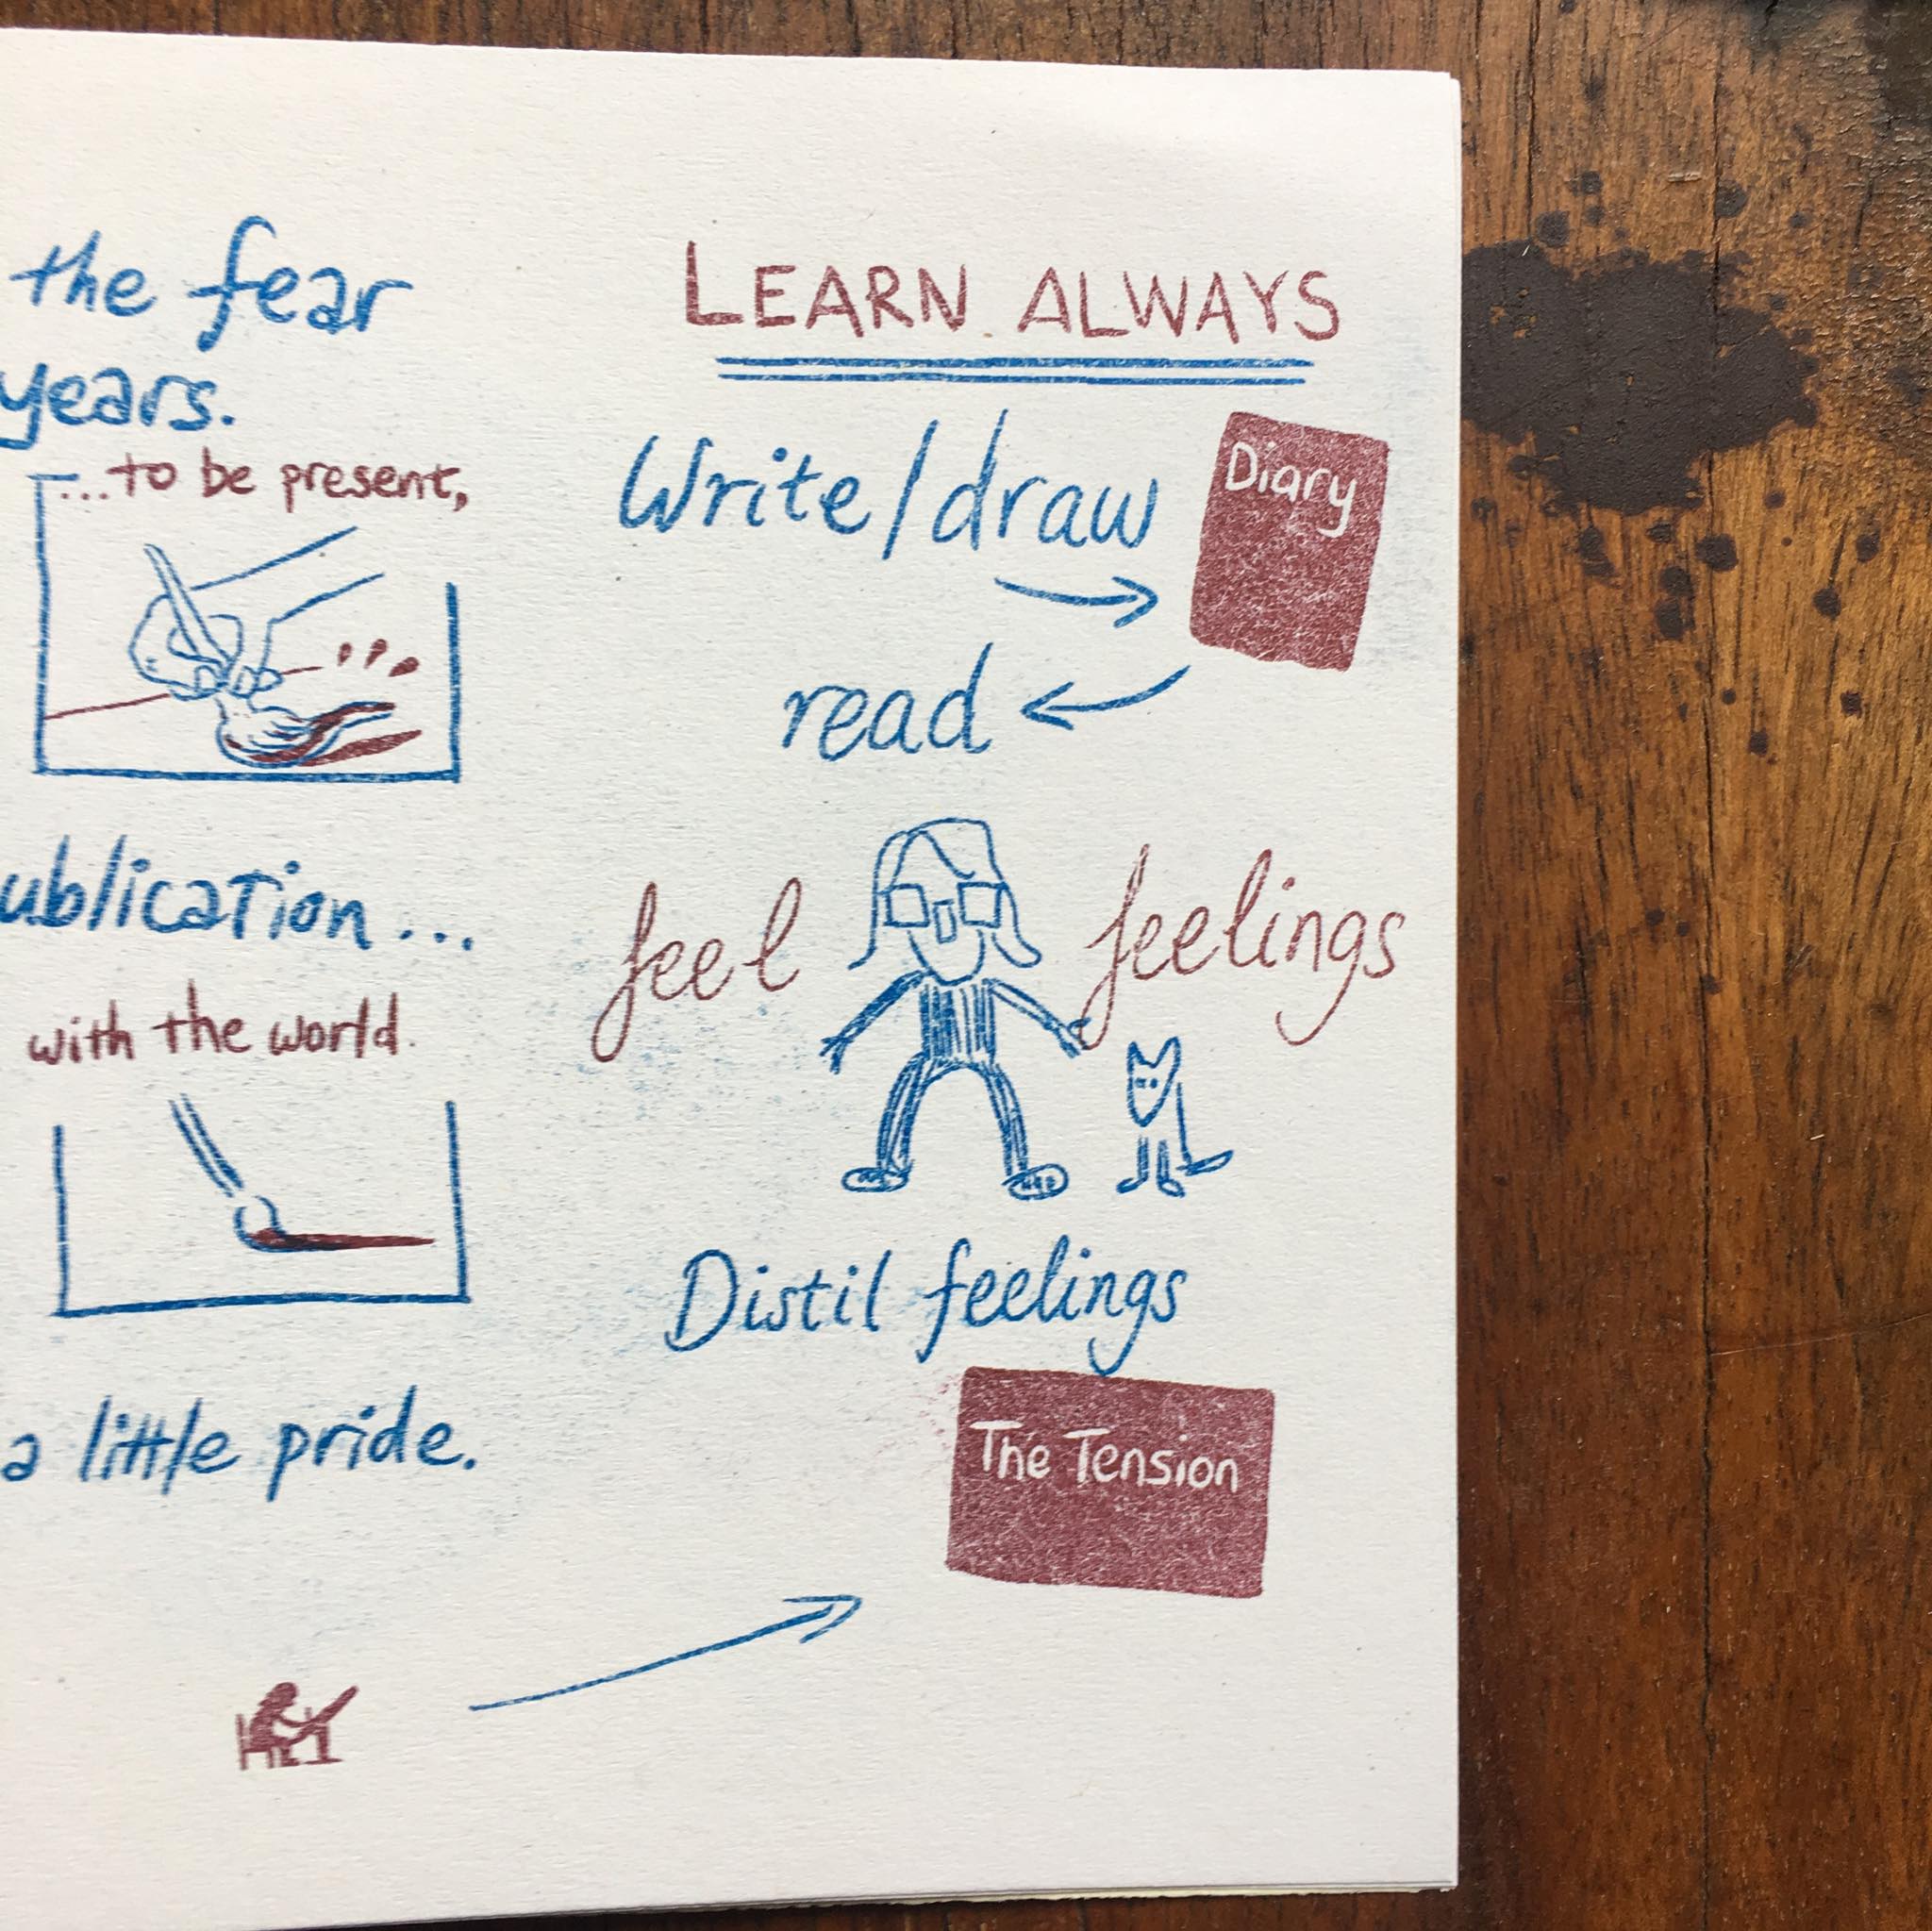 the fear
years.
...to be present,
ublication...
with the world.
a little pride.
LEARN ALWAYS
Write/draw
Diary
read
feel feelings
Distil feelings
The Tension